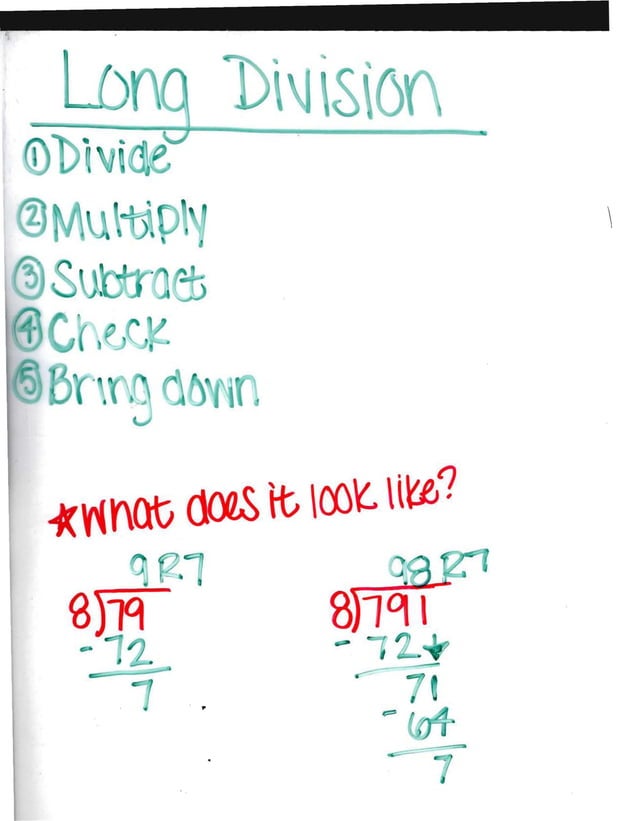 Long Division
①Divide
②Multiply
③Subtract
④Check
⑤Bring down
★What does it look like?
9 R7
8)79
- 72
7
98 R7
8)791
- 72↓
71
- 64
7